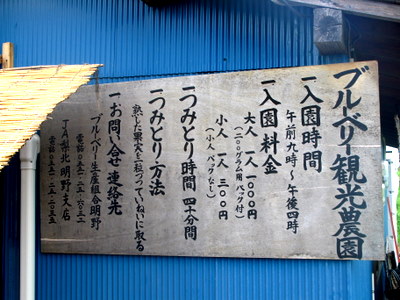 ブルーベリー観光農園
一入園時間
午前九時～午後四時
一入園料金
大人一人一〇〇〇円
(二〇〇グラム用パック付)
小人一人三〇〇円
(小人パックなし)
一つみとり時間 四十分間
一つみとり方法
熟した果実を一粒づつていねいに取る
一お問い合せ連絡先
ブルーベリー生産組合明野
JA梨北明野支店